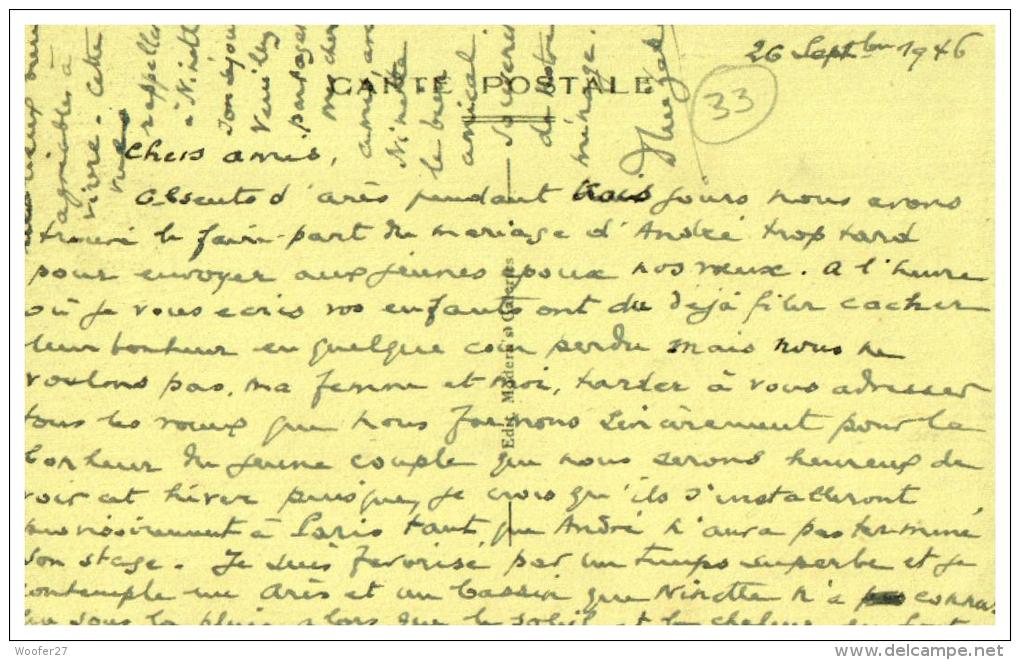 26 Septbre 1946
CARTE POSTALE
33
Chers amis,
Absents d'Arès pendant trois jours nous avons
trouvé le faire-part du mariage d'André trop tard
pour envoyer aux jeunes époux nos vœux. A l'heure
où je vous écris vos enfants ont du déjà filer cacher
leur bonheur en quelque coin perdu mais nous ne
voulons pas, ma femme et moi, tarder à vous adresser
tous les vœux que nous formons sincèrement pour le
bonheur du jeune couple que nous serons heureux de
voir cet hiver puisque, je crois qu'ils s'installeront
provisoirement à Paris tant que André n'aura pas terminé
son stage. Je suis favorisé par un temps superbe et je
contemple un Arès et un bassin que Ninette n'a pas connu
sous la pluie alors que le soleil et la chaleur
agréables à
vivre. Cette
rappelle
à Ninette
son séjour
Veuillez
partager
mon cher
ami, avec
Ninette
le bien
amical
souvenir
de notre
ménage.
Edit. Moderne
Woofer27
www.delcampe.net